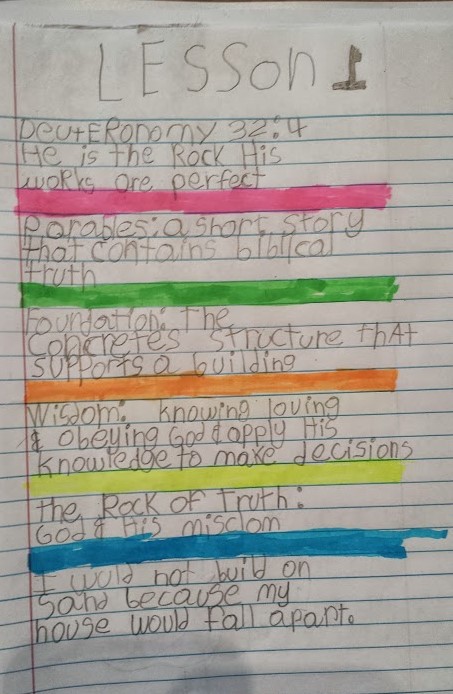 LESSon 1
DeutERonomy 32:4
He is the Rock His
works are perfect
Parables: a short story
that contains biblical
truth
Foundation: The
concretes structure thAt
supports a building
Wisdom: knowing loving
& obeying God & apply His
knowledge to make decisions
the Rock of Truth:
God & His misdom
I wuld not build on
Sand because my
house would fall apart.